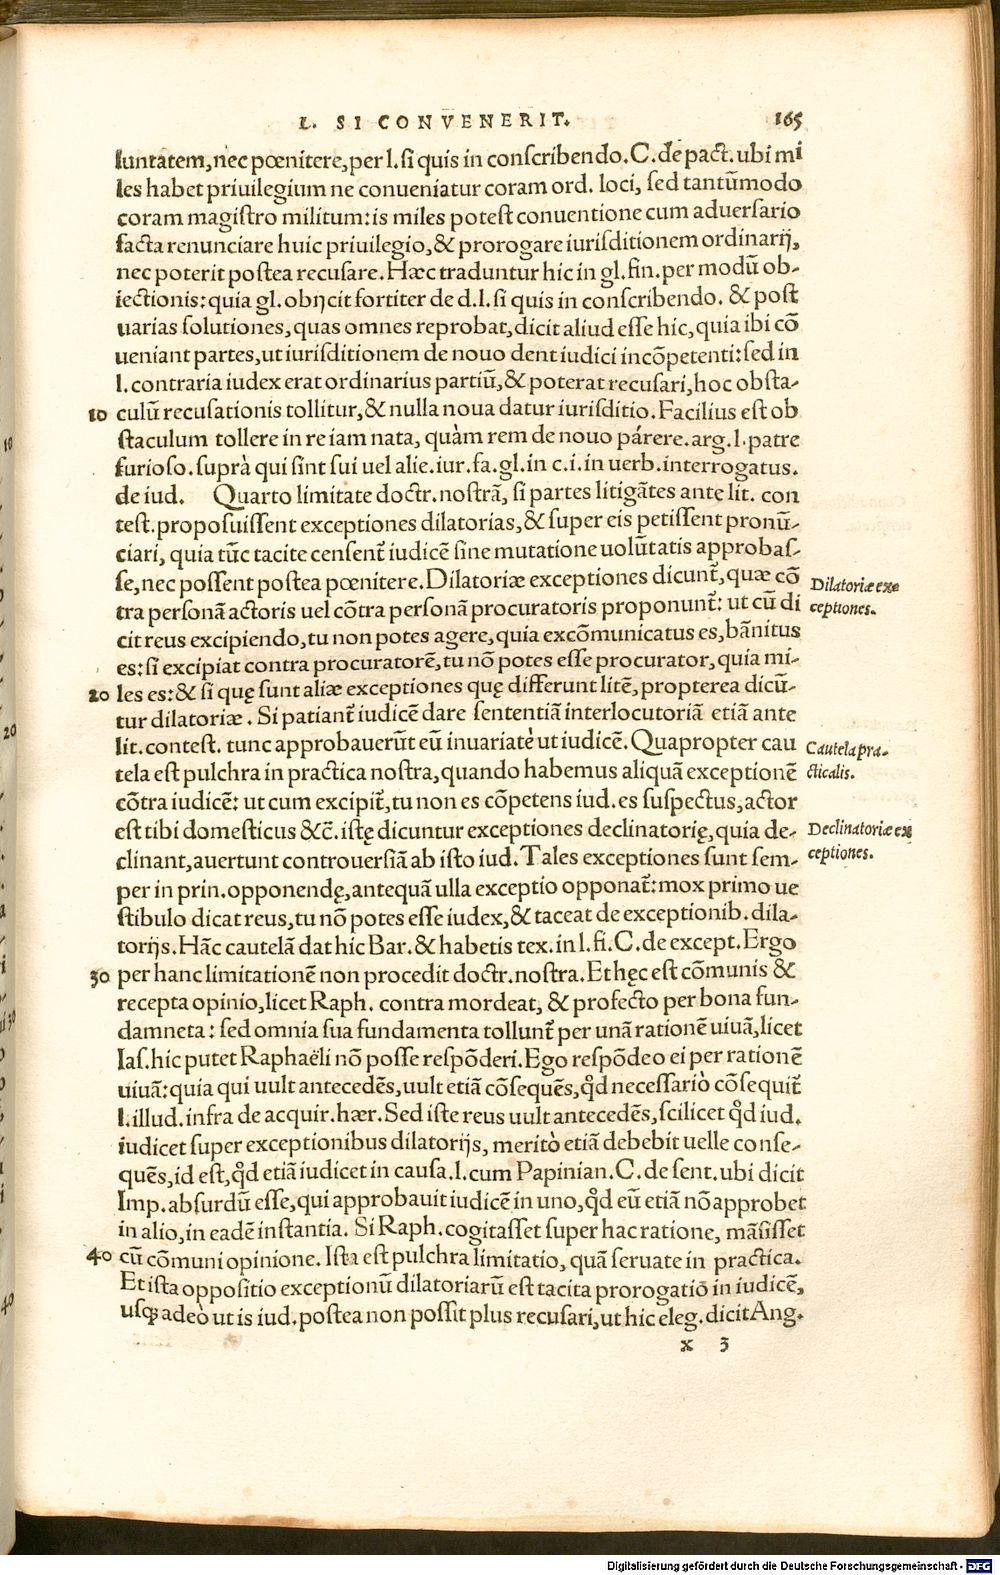 L. SI CONVENERIT. 165
luntatem, nec pœnitere, per l. si quis in conscribendo. C. de pact. ubi mi
les habet priuilegium ne conueniatur coram ord. loci, sed tantũmodo
coram magistro militum: is miles potest conuentione cum aduersario
facta renunciare huic priuilegio, & prorogare iurisditionem ordinarij,
nec poterit postea recusare. Hæc traduntur hic in gl. fin. per modũ ob-
iectionis: quia gl. obijcit fortiter de d. l. si quis in conscribendo. & post
uarias solutiones, quas omnes reprobat, dicit aliud esse hic, quia ibi cõ
ueniant partes, ut iurisditionem de nouo dent iudici incõpetenti: sed in
l. contraria iudex erat ordinarius partiũ, & poterat recusari, hoc obsta-
10 culũ recusationis tollitur, & nulla noua datur iurisditio. Facilius est ob
staculum tollere in re iam nata, quàm rem de nouo párere. arg. l. patre
furioso. suprà qui sint sui uel alie. iur. fa. gl. in c. i. in uerb. interrogatus.
de iud. Quarto limitate doctr. nostrã, si partes litigãtes ante lit. con
test. proposuissent exceptiones dilatorias, & super eis petissent pronũ-
ciari, quia tũc tacite censent̃ iudicẽ sine mutatione uolũtatis approbas-
se, nec possent postea pœnitere. Dilatoriæ exceptiones dicunt̃, quæ cõ
tra personã actoris uel cõtra personã procuratoris proponunt̃: ut cũ di
cit reus excipiendo, tu non potes agere, quia excõmunicatus es, bãnitus
es: si excipiat contra procuratorẽ, tu nõ potes esse procurator, quia mi-
20 les es: & si quę sunt aliæ exceptiones quę differunt litẽ, propterea dicũ-
tur dilatoriæ. Si patiant̃ iudicẽ dare sententiã interlocutoriã etiã ante
lit. contest. tunc approbauerũt eũ inuariatè ut iudicẽ. Quapropter cau
tela est pulchra in practica nostra, quando habemus aliquã exceptionẽ
cõtra iudicẽ: ut cum excipit̃, tu non es cõpetens iud. es suspectus, actor
est tibi domesticus &c̃. istę dicuntur exceptiones declinatorię, quia de-
clinant, auertunt controuersiã ab isto iud. Tales exceptiones sunt sem-
per in prin. opponendę, antequã ulla exceptio opponat̃: mox primo ue
stibulo dicat reus, tu nõ potes esse iudex, & taceat de exceptionib. dila-
torijs. Hãc cautelã dat hic Bar. & habetis tex. in l. fi. C. de except. Ergo
30 per hanc limitationẽ non procedit doctr. nostra. Et hęc est cõmunis &
recepta opinio, licet Raph. contra mordeat, & profecto per bona fun-
damneta: sed omnia sua fundamenta tollunt̃ per unã rationẽ uiuã, licet
Ias. hic putet Raphaëli nõ posse respõderi. Ego respõdeo ei per rationẽ
uiuã: quia qui uult antecedẽs, uult etiã cõsequẽs, qd̃ necessariò cõsequit̃
l. illud. infra de acquir. hær. Sed iste reus uult antecedẽs, scilicet qd̃ iud.
iudicet super exceptionibus dilatorijs, meritò etiã debebit uelle conse-
quẽs, id est, qd̃ etiã iudicet in causa. l. cum Papinian. C. de sent. ubi dicit
Imp. absurdũ esse, qui approbauit iudicẽ in uno, qd̃ eũ etiã nõ approbet
in alio, in eadẽ instantia. Si Raph. cogitasset super hac ratione, mãsisset
40 cũ cõmuni opinione. Ista est pulchra limitatio, quã seruate in practica.
Et ista oppositio exceptionũ dilatoriarũ est tacita prorogatiõ in iudicẽ,
usq; adeò ut is iud. postea non possit plus recusari, ut hic eleg. dicit Ang.
x 3
Dilatoriæ ex-
ceptiones.
Cautela pra-
cticalis.
Declinatoriæ ex
ceptiones.
Digitalisierung gefördert durch die Deutsche Forschungsgemeinschaft - DFG